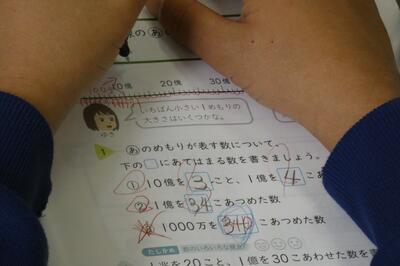 の あ
10億 20億 30億
いちばん小さい1めもりの
大きさはいくつかな。
ゆき
1 あのめもりが表す数について、
下の□にあてはまる数を書きましょう。
① 10億を 3 こと、1億を 4 こあ
② 1億を 34 こあつめた数
1000万を 340 こあつめた数
たしかめ 数のいろいろな見方
1兆を20こと、1億を30こあわせた数を